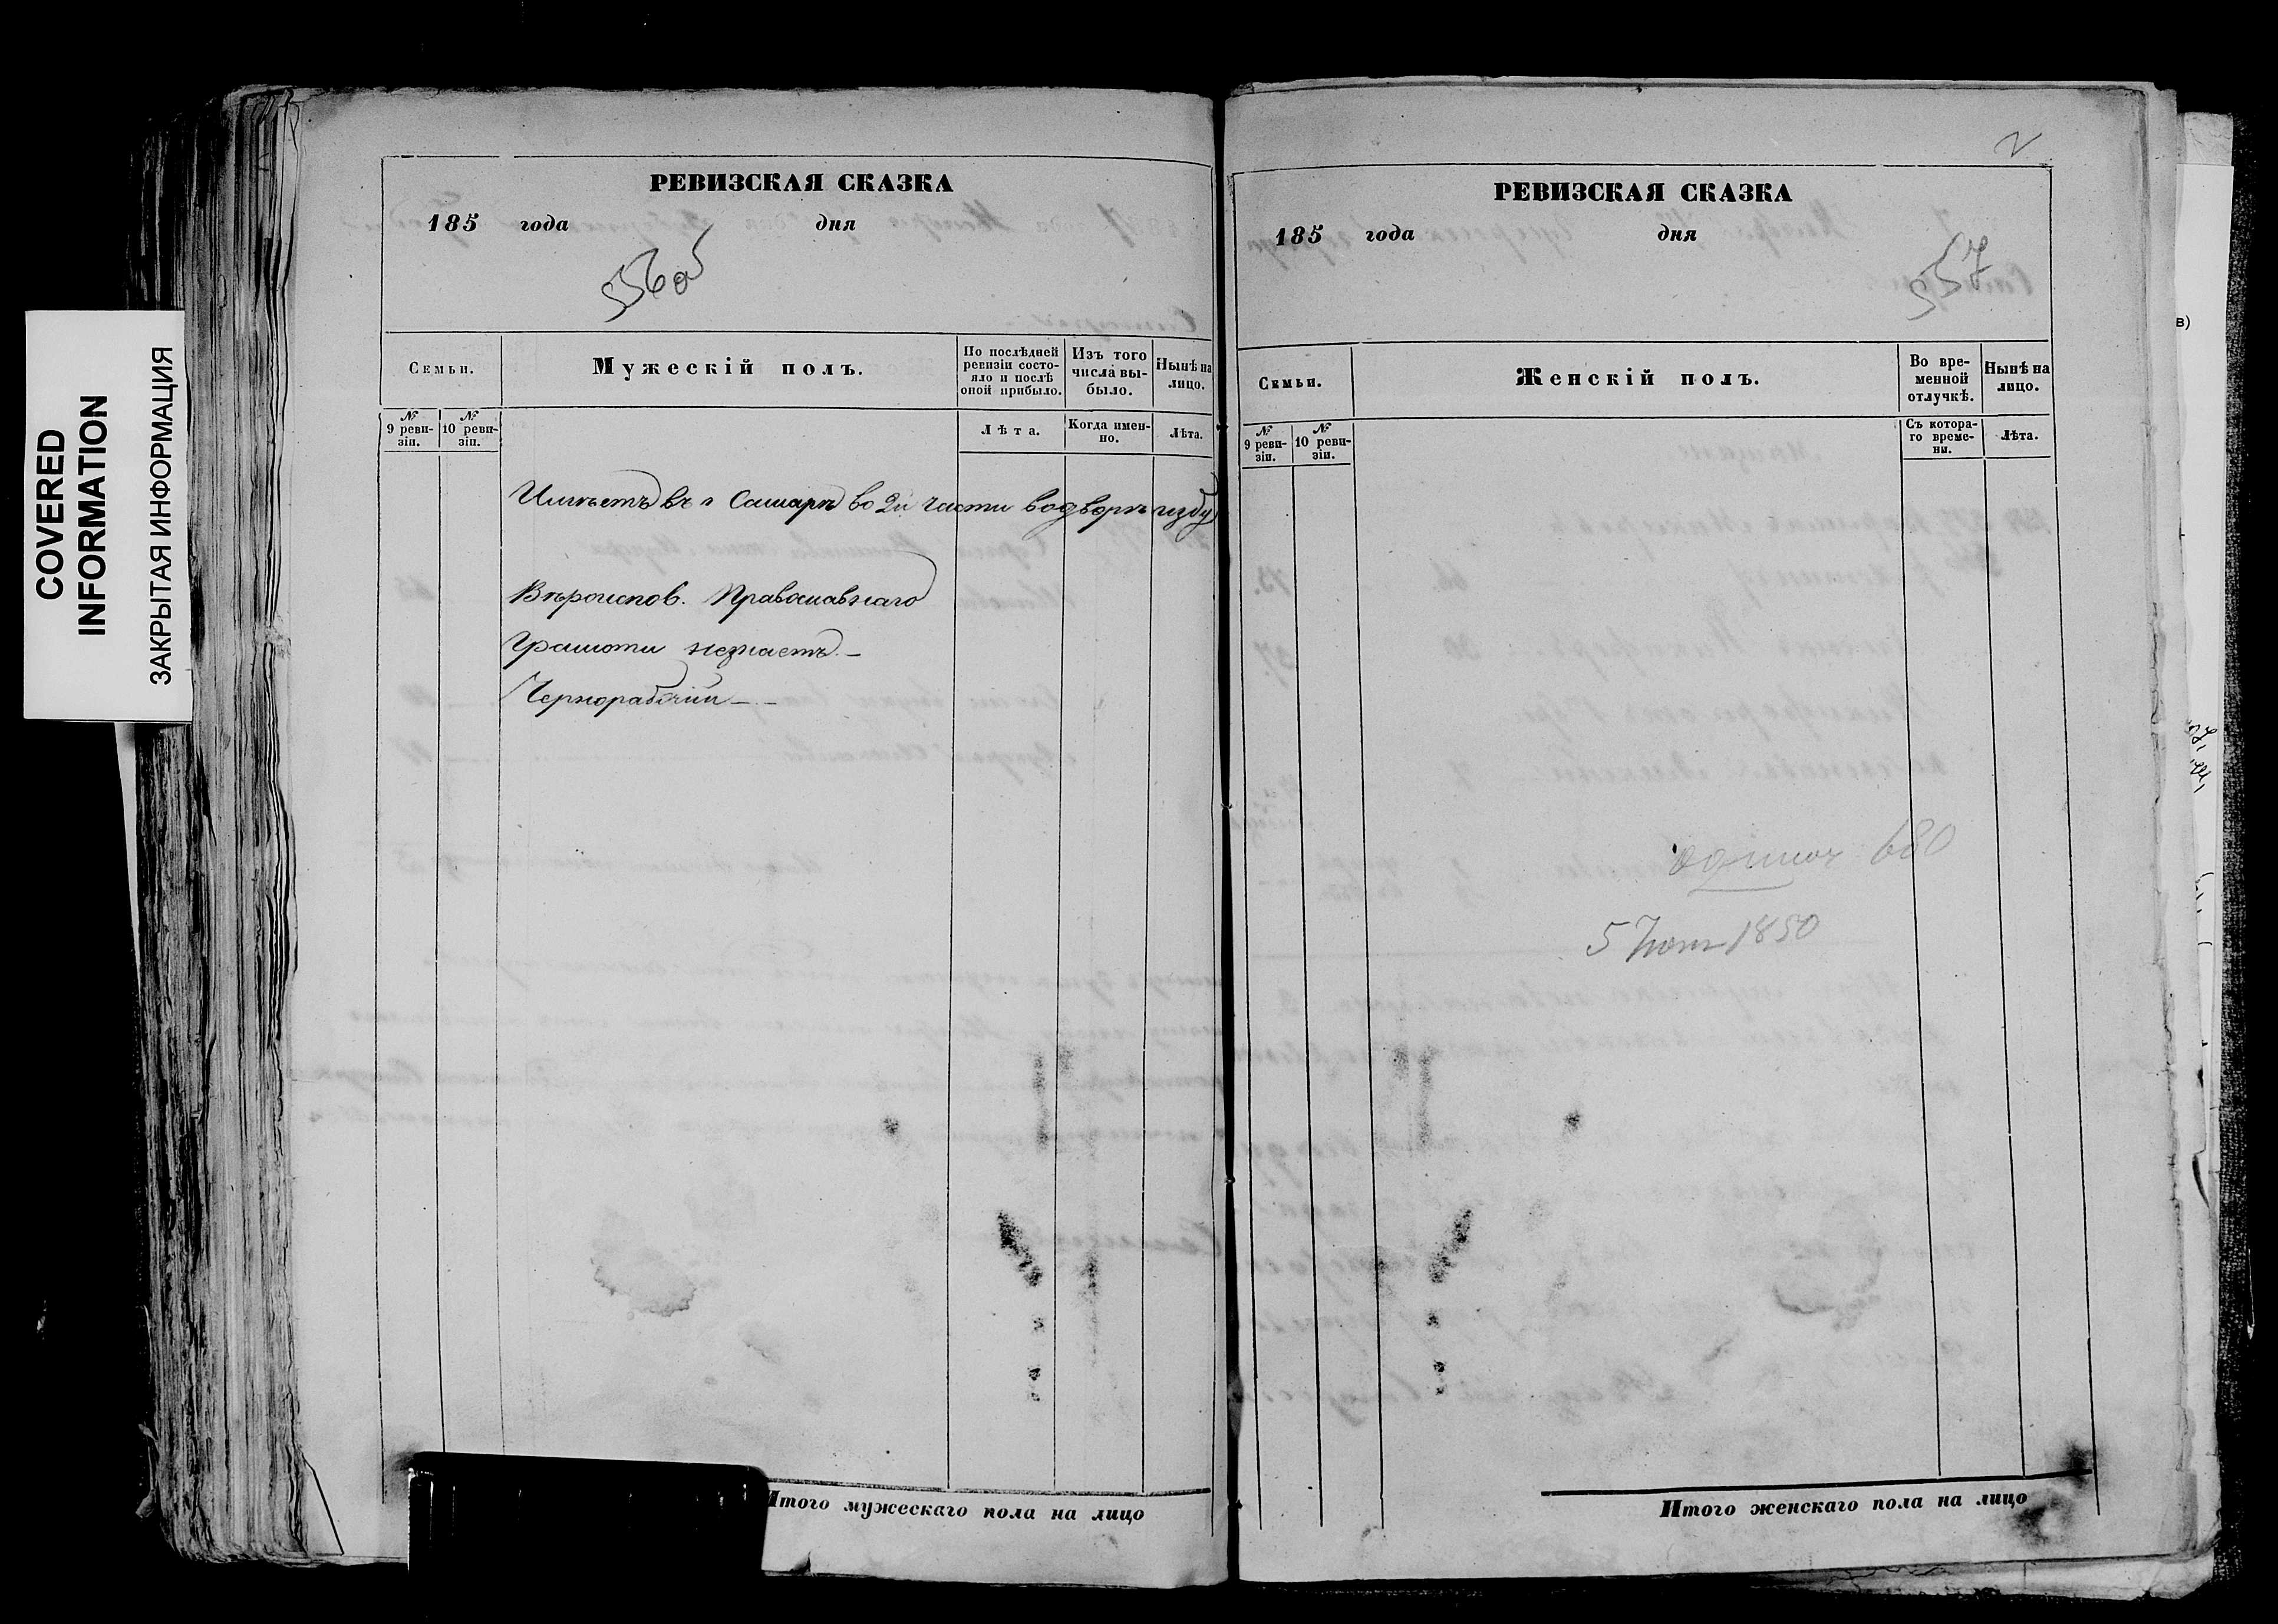 COVERED
INFORMATION
ЗАКРЫТАЯ ИНФОРМАЦИЯ
РЕВИЗСКАЯ СКАЗКА
185 года дня
556об
Семьи.
Мужескій полъ.
По послѣдней ревизіи состояло и послѣ оной прибыло.
Изъ того числа выбыло.
Нынѣ на лицо.
№ 9 ревизіи.
№ 10 ревизіи.
Лѣта.
Когда именно.
Лѣта.
Имѣетъ въ г Самарѣ во 2й части во дворѣ избу
Вѣроиспов. Православнаго
Грамоти незнаетъ. —
Чернорабочій — . —
Итого мужескаго пола на лицо
2
РЕВИЗСКАЯ СКАЗКА
185 года дня
557
Семьи.
Женскій полъ.
Во временной отлучкѣ.
Нынѣ на лицо.
№ 9 ревизіи.
№ 10 ревизіи.
Съ котораго времени.
Лѣта.
680
5 1850
Итого женскаго пола на лицо
в)